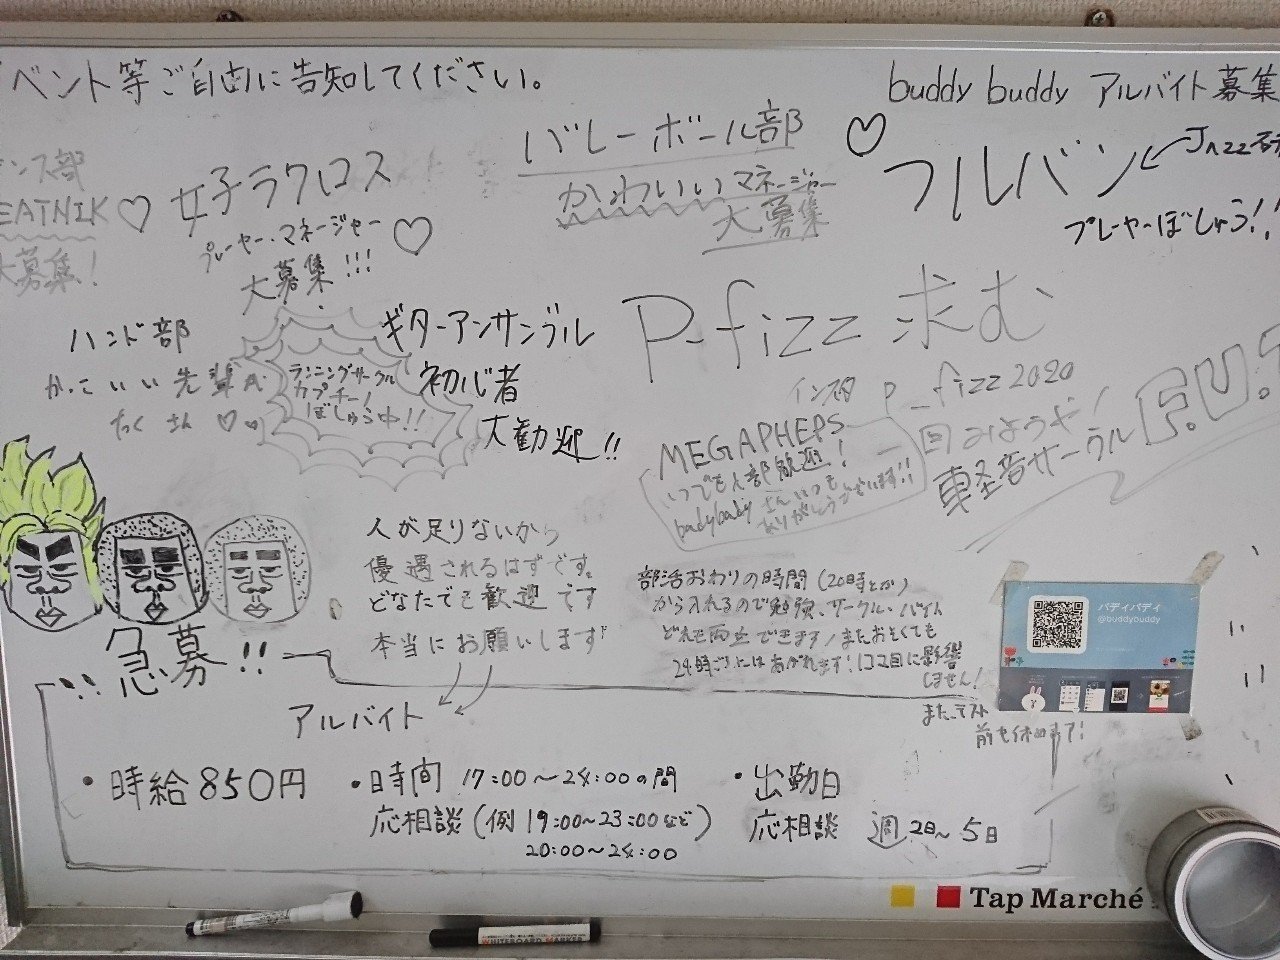 ベント等ご自由に告知してください。
buddy buddy アルバイト募集
バレーボール部
かわいいマネージャー
大募集
フルバン
Jazz研
プレーヤーぼしゅう!!
ンス部
EATNIK
大募集!
女子ラクロス
プレーヤー・マネージャー
大募集!!!
ハンド部
かっこいい先輩が
たくさん
ランニングサークル
カプチーノ
ぼしゅう中!!
ギターアンサンブル
初心者
大歓迎!!
P-fizz 求む
インスタ p_fizz2020
MEGAPHEPS
いつでも入部歓迎!
badybady さんいつも
ありがとうございます!!
軽音サークル F.U.
人が足りないから
優遇されるはずです。
どなたでも歓迎です
本当にお願いします
部活おわりの時間(20時とか)
から入れるので勉強、サークル・バイト
どれも両立できます!またおそくても
24時ごろにはあがれます!1コマ目に影響
しません!
また、テスト
前も休めます!
バディバディ
@buddybuddy
急募!!
アルバイト
・時給850円
・時間 17:00～24:00の間
応相談(例 19:00～23:00など)
20:00～24:00
・出勤日
応相談 週2日～5日
Tap Marché
WHITEBOARD MARKER